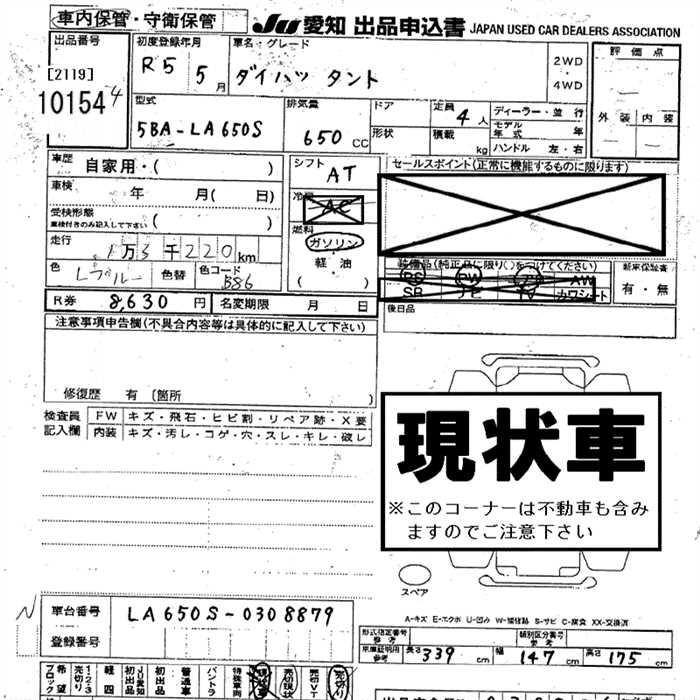 車内保管・守衛保管
JU 愛知 出品申込書 JAPAN USED CAR DEALERS ASSOCIATION
出品番号
[2119]
10154
4
初度登録年月
R5 5月
車名・グレード
ダイハツ タント
2WD
・
4WD
評価点
外装 内装
型式
5BA-LA650S
排気量
650 CC
ドア
形状
定員 4人
積載 kg
ディーラー・並行
モデル年式 年
ハンドル 左・右
車歴 自家用・( )
車検 年 月( 日)
受検形態
車検付きのみ記入して下さい ( )
走行 1万3千220km
色 Lブルー 色替 色コード B86
シフト AT
冷房 AC
燃料
ガソリン
軽・油
( )
セールスポイント(正常に機能するものに限ります)
装備品(純正品に限り○をつけてください)
PS PW AW
SB TV カワシート
新車保証書
有・無
後日品
R券 8,630円 名変期限 月 日
注意事項申告欄(不具合内容等は具体的に記入して下さい)
修復歴 有 〔箇所 〕
検査員記入欄
FW キズ・飛石・ヒビ割・リペア跡・X要
内装 キズ・汚レ・コゲ・穴・スレ・キレ・破レ
現状車
※このコーナーは不動車も含み
ますのでご注意下さい
スペア
A-キズ E-エクボ U-凹み W-補修跡 S-サビ C-腐食 XX-交換済
N
車台番号 LA650S-0308879
登録番号
形式指定番号
参考
類別区分番号
参考
車庫証明用
参考
長さ 339 cm 幅 147 cm 高さ 175 cm
希望ブロック
1・2・3売切り
軽四
JU愛知初出品
初出品
普通車
バントラ
特殊車両
現状車
売切現状
売切VT
売切り